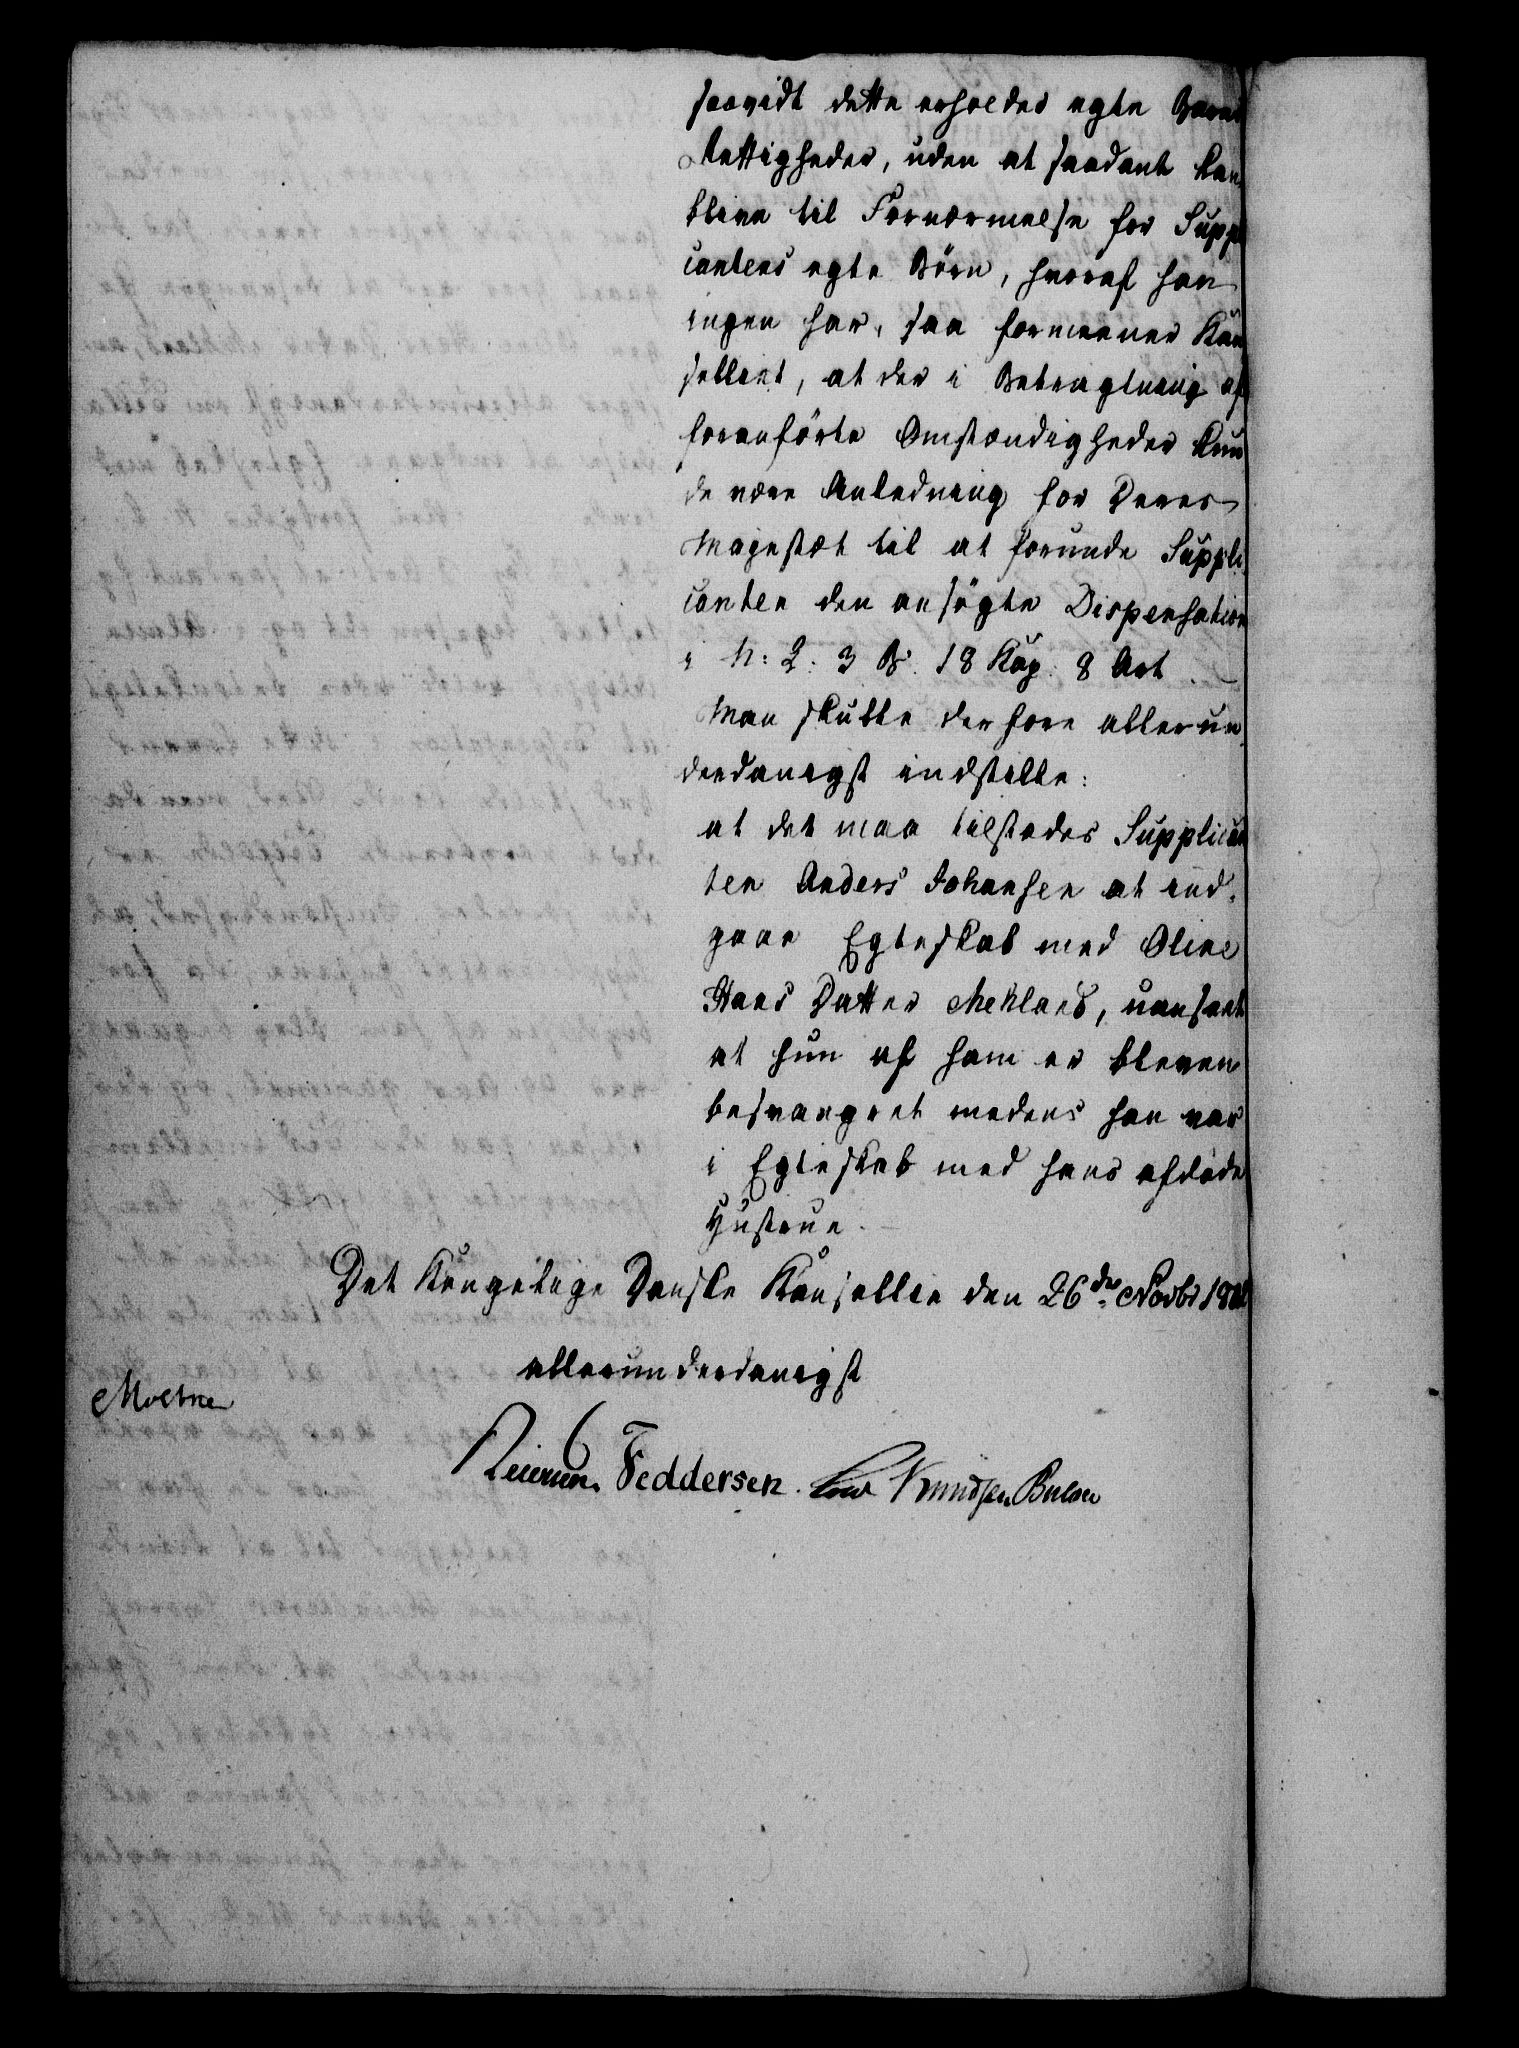 saavidt dette erholder egte Barns
Rettigheder, uden at saadant kan
blive til Fornærmelse for Suppli
cantens egte Børn, hvoraf han
ingen har, saa formeener Kan
selliet, at der i Betragtning af
foranførte Omstændigheder kun
de være Anledning for Deres
Majestæt til at forunde Suppli
canten den ansøgte Dispensation
i N: L: 3 B. 18 Kap. 8 Art.
Man skulle derfore allerun
derdanigst indstille:
at det maa tilstædes Supplican
ten Anders Johansen at ind-
gaae Egteskab med Oline
Hans Datter Meklans, uanseet
at hun af ham er bleven
besvangret medens han var
i Egteskab med hans afdøde
Hustrue.
Det Kongelige Danske Kansellie den 26de Novbr
allerunderdanigst
Moltke
Feddersen. Knudsen Bülow